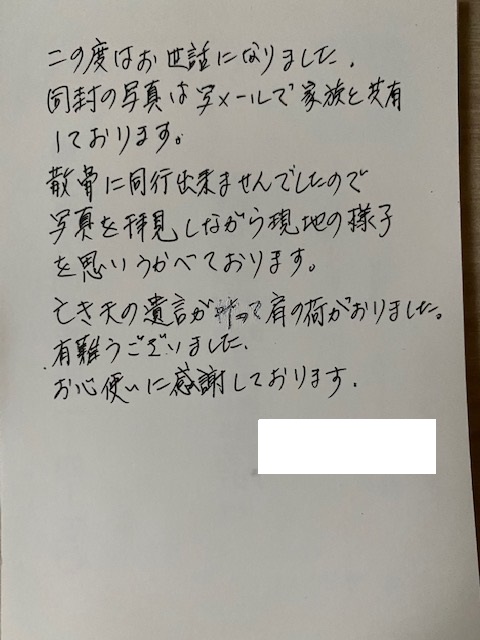 この度はお世話になりました.
同封の写真は写メールで家族と共有
しております。
散骨に同行出来ませんでしたので
写真を拝見しながら現地の様子
を思いうかべております。
亡き夫の遺言が叶って肩の荷がおりました。
有難うございました.
お心使いに感謝しております.